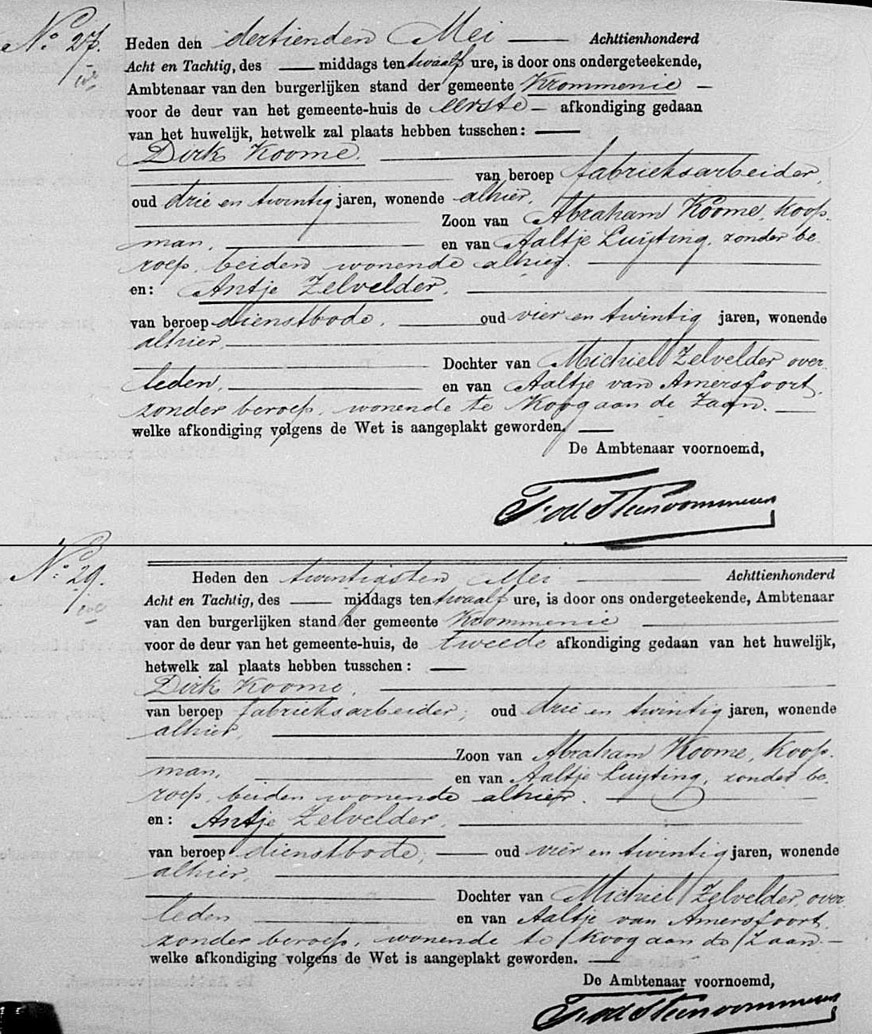 No. 27.
Heden den dertienden Mei Achttienhonderd
Acht en Tachtig, des middags ten twaalf ure, is door ons ondergeteekende,
Ambtenaar van den burgerlijken stand der gemeente Krommenie
voor de deur van het gemeente-huis de eerste afkondiging gedaan
van het huwelijk, hetwelk zal plaats hebben tusschen:
Dirk Koome.
van beroep fabrieksarbeider,
oud drie en twintig jaren, wonende alhier,
Zoon van Abraham Koome, koop-
man, en van Aaltje Luijting, zonder be-
roep, beiden wonende alhier.
en: Antje Zelvelder,
van beroep dienstbode, oud vier en twintig jaren, wonende
alhier,
Dochter van Michiel Zelvelder, over-
leden, en van Aaltje van Amersfoort,
zonder beroep, wonende te Koog aan de Zaan.
welke afkondiging volgens de Wet is aangeplakt geworden.
De Ambtenaar voornoemd,
No. 29.
Heden den twintigsten Mei Achttienhonderd
Acht en Tachtig, des middags ten twaalf ure, is door ons ondergeteekende, Ambtenaar
van den burgerlijken stand der gemeente Krommenie
voor de deur van het gemeente-huis, de tweede afkondiging gedaan van het huwelijk,
hetwelk zal plaats hebben tusschen:
Dirk Koome,
van beroep fabrieksarbeider, oud drie en twintig jaren, wonende
alhier,
Zoon van Abraham Koome, koop-
man, en van Aaltje Luijting, zonder be-
roep, beiden wonende alhier.
en: Antje Zelvelder,
van beroep dienstbode, oud vier en twintig jaren, wonende
alhier,
Dochter van Michiel Zelvelder, over-
leden en van Aaltje van Amersfoort,
zonder beroep, wonende te Koog aan de Zaan.
welke afkondiging volgens de Wet is aangeplakt geworden.
De Ambtenaar voornoemd,